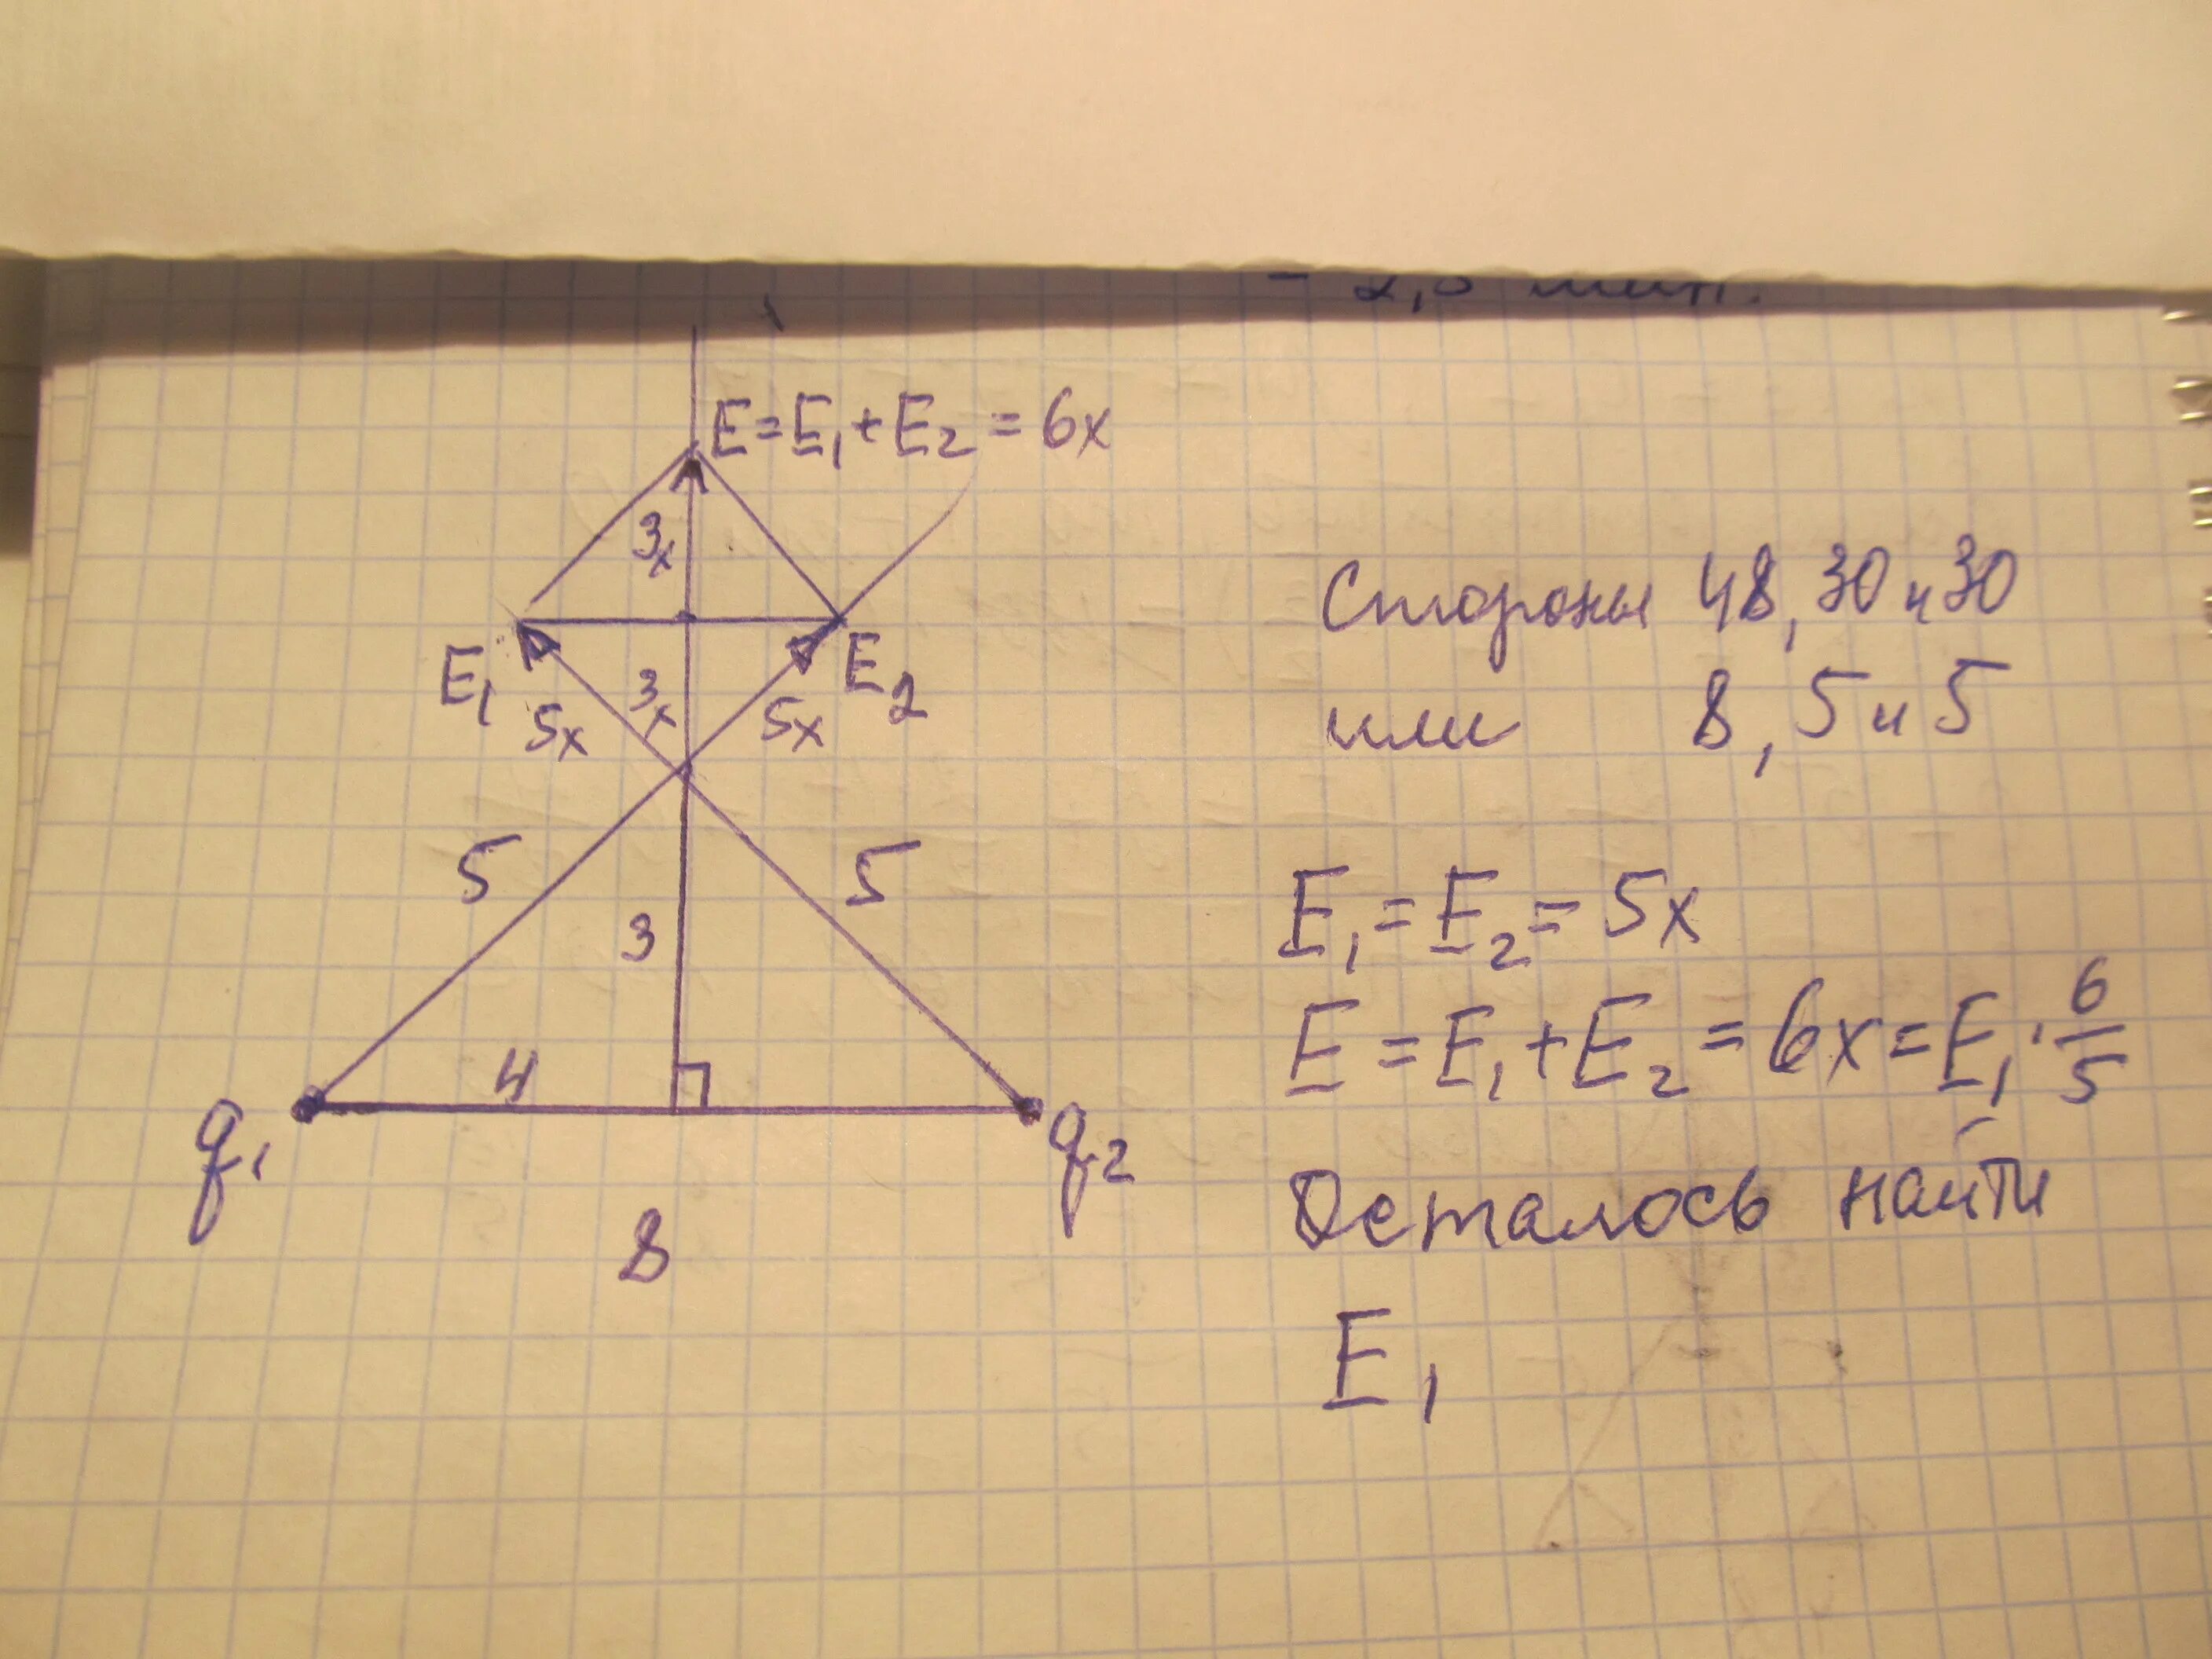 E=E₁+E₂=6x
3x
E₁
E₂
5x
3x
5x
5
5
3
4
q₁
q₂
8
Стороны 48, 30 и 30
или 8, 5 и 5
E₁=E₂=5x
E=E₁+E₂=6x=E₁·6/5
Осталось найти
E₁